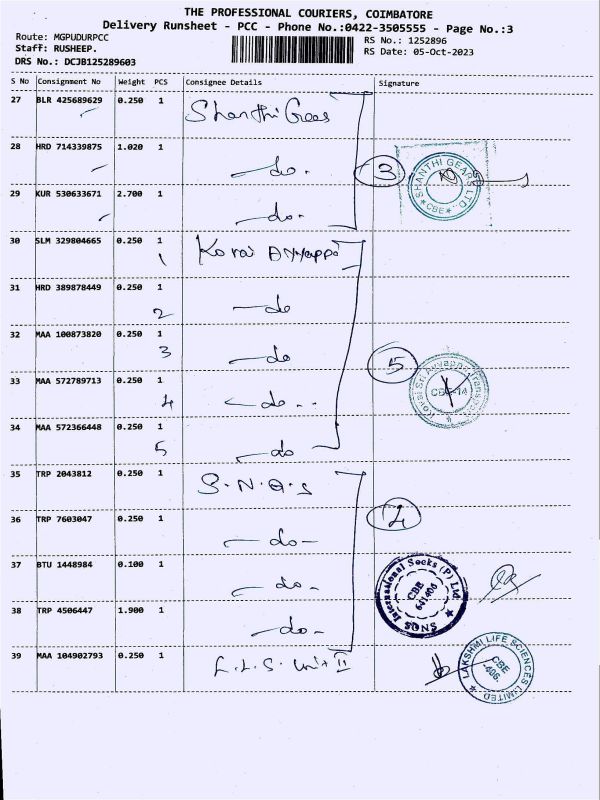 THE PROFESSIONAL COURIERS, COIMBATORE
Delivery Runsheet - PCC - Phone No.:0422-3505555 - Page No.:3
Route: MGPUDURPCC
RS No.: 1252896
Staff: RUSHEEP.
RS Date: 05-Oct-2023
DRS No.: DCJB125289603
S No Consignment No Weight PCS Consignee Details Signature
27 BLR 425689629 0.250 1 Shanthi Gears
28 HRD 714339875 1.020 1 —do-
3
SHANTHI GEARS LTD. CBE
29 KUR 530633671 2.700 1 —do-
30 SLM 329804665 0.250 1 Kovai Ayyappa
1
31 HRD 389878449 0.250 1 —do
2
32 MAA 100873820 0.250 1 —do
3
5
33 MAA 572789713 0.250 1 —do--
4
Kovai Sri Ayyappa Transport CBE-14
34 MAA 572366448 0.250 1 —do
5
35 TRP 2043812 0.250 1 S.N.Q.S
4
36 TRP 7603047 0.250 1 —do-
37 BTU 1448984 0.100 1 —do-
SNQS International Socks (P) Ltd CBE 641406
38 TRP 4506447 1.900 1 —do-
39 MAA 104902793 0.250 1 L.L.S. Unit II
LAKSHMI LIFE SCIENCES LIMITED CBE -406.